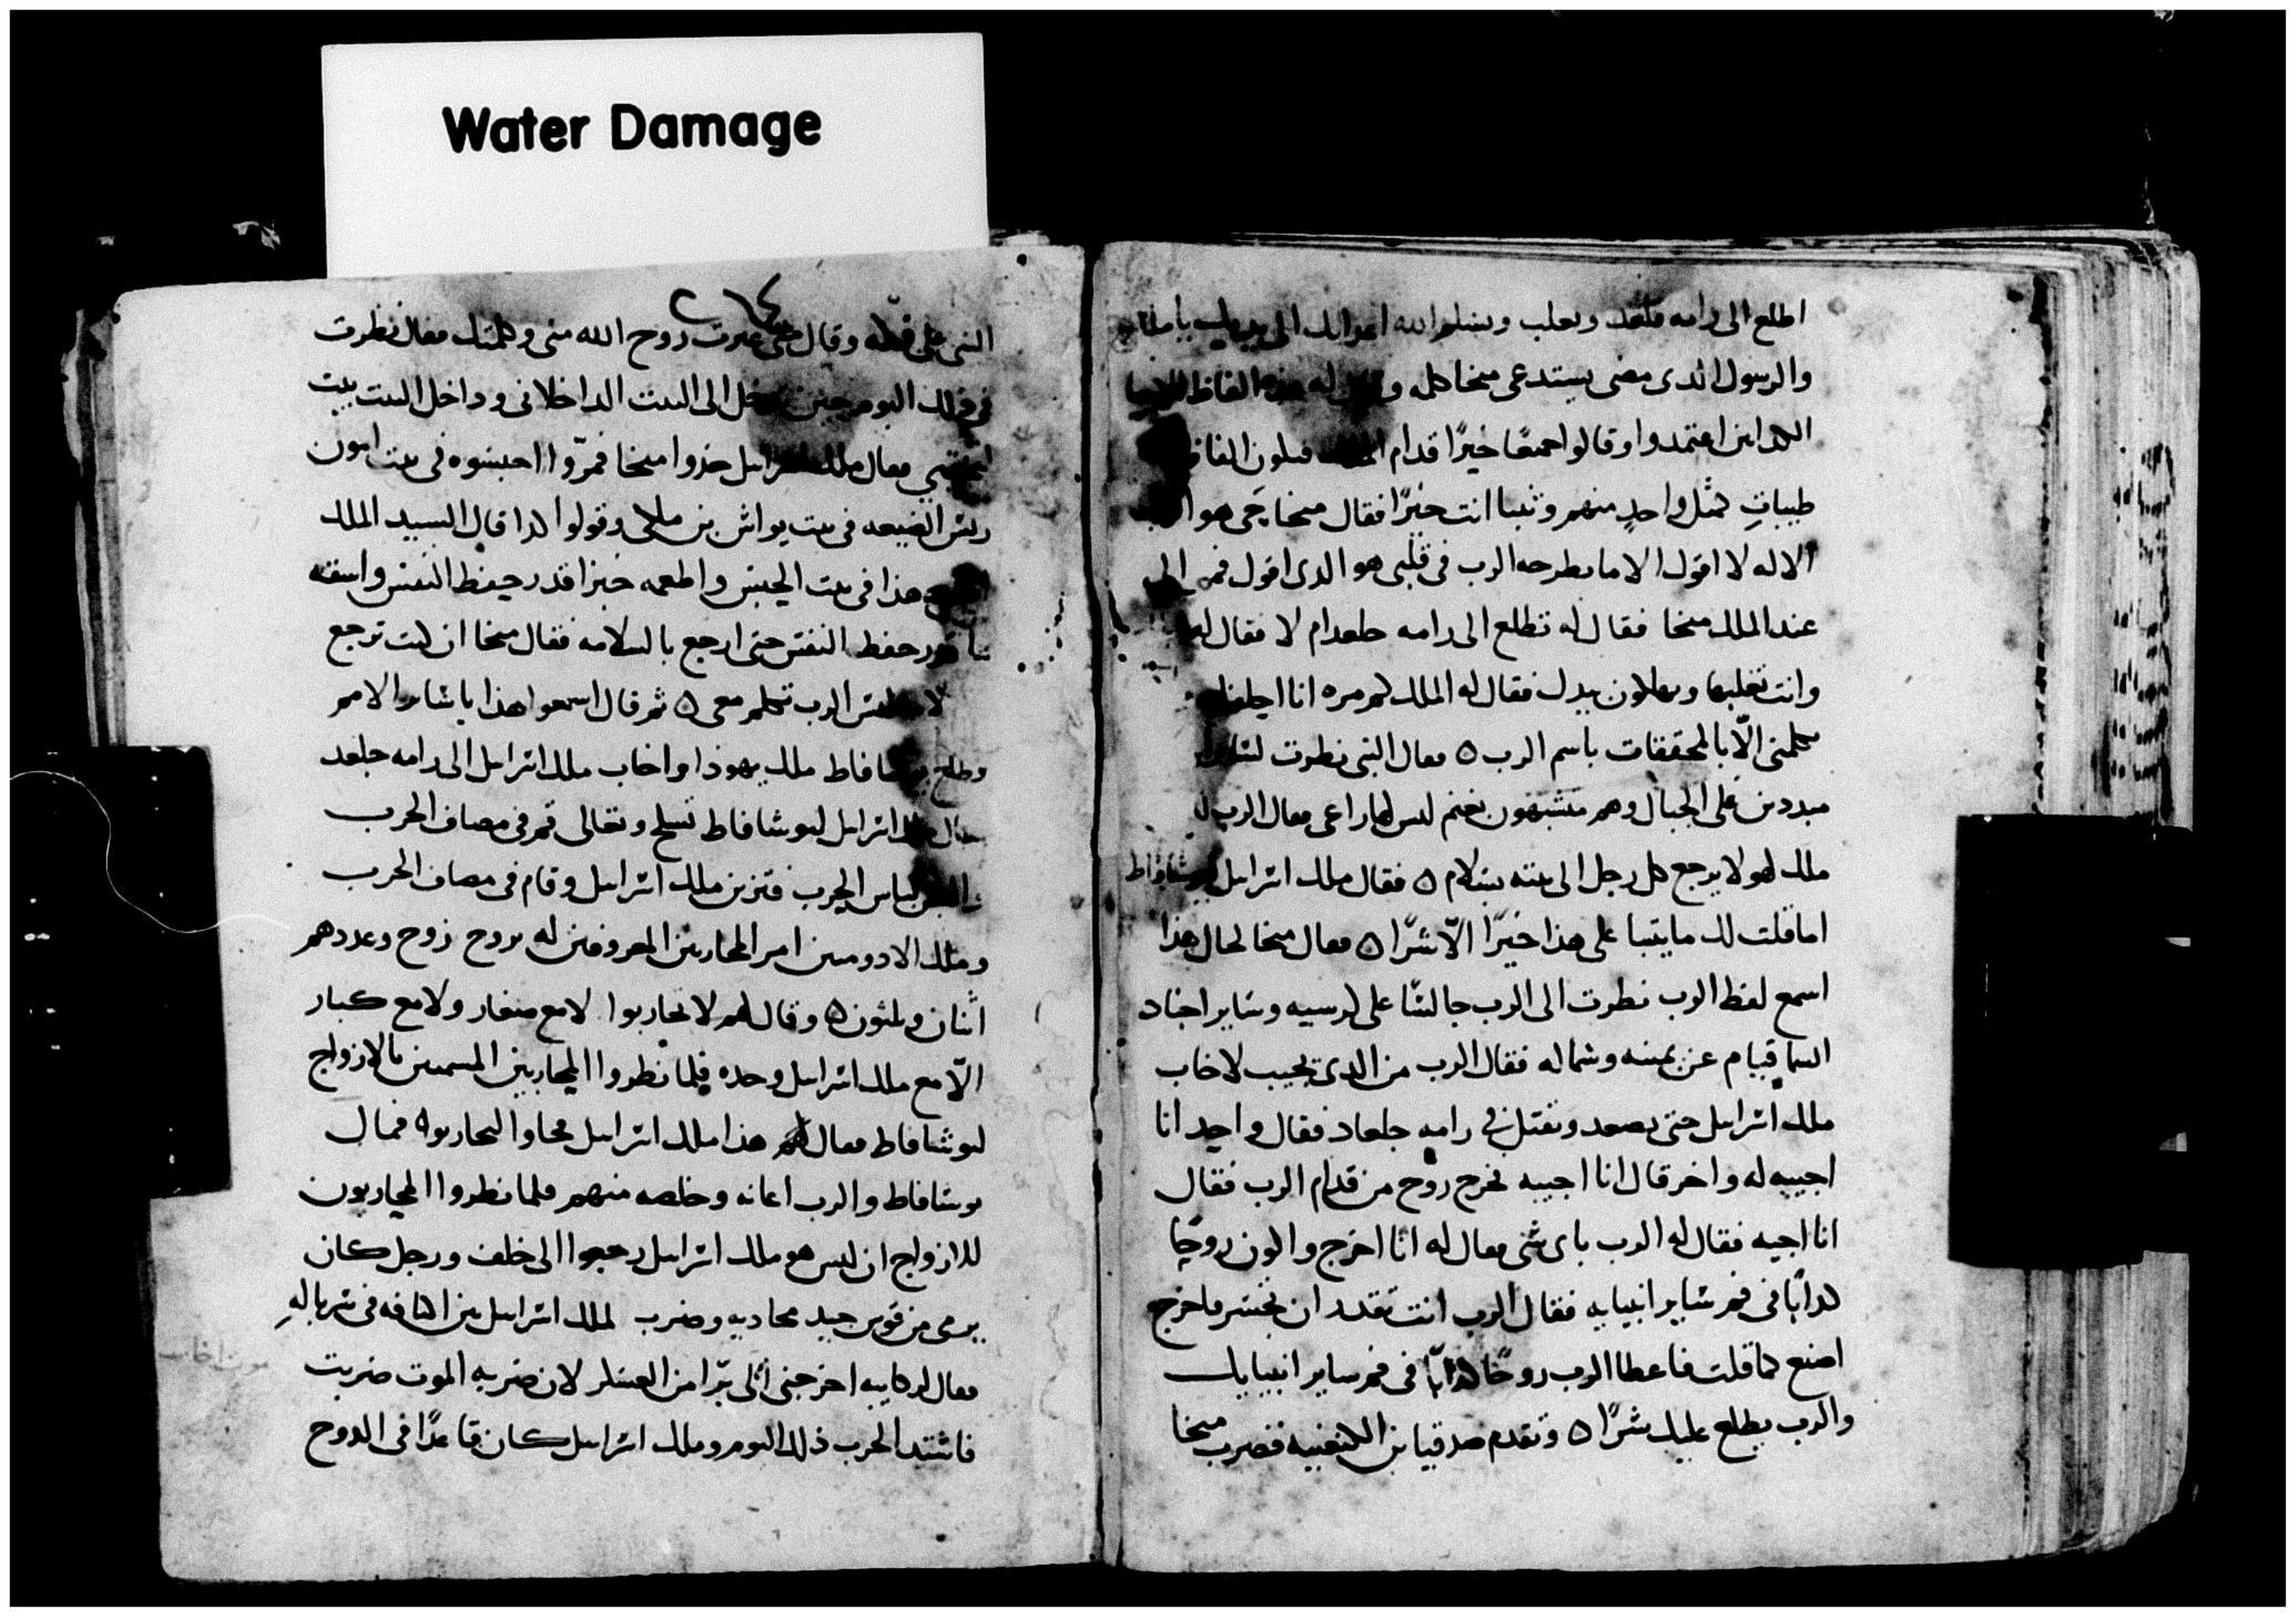 Water Damage
اطلع الى رامه جلعد وتغلب ويسلم الله اعدايك الى يديك يا ملك
والرسول الذى مضى يستدعى ميخا كلمه وقال له هذه الفاظ الانبيا
الكدابين اعتمدوا وقالوا جميعًا خيرًا قدام الملك فيكون الفاظ
طيباتٍ كمثل واحدٍ منهم وتنبا انت خيرًا فقال ميخا حى هو الرب
الاله لا اقول الا ما يطرحه الرب فى قلبى هو الدى اقول فمر الى
عند الملك ميخا فقال له نطلع الى رامه جلعد ام لا فقال له
وانت تغلبها ويهلكون بيدك فقال له الملك كم مره انا احلفك
تكلمنى الّا بالمحققات باسم الرب ٥ فقال النبى نظرت لسراييل
مبددين على الجبال وهم متشبهون بغنم ليس لها راعى فقال الرب لا
ملك لهولا يرجع كل رجل الى بيته بسلام ٥ فقال ملك اسراييل ليوشافاط
اما قلت لك ما يتنبا على هذا خيرًا الّا شرًا ٥ فقال ميخا لحال هذا
اسمع لفظ الرب نظرت الى الرب جالسًا على كرسيه وساير اجناد
السما قيام عن يمينه وشماله فقال الرب من الدى يجيب لاخاب
ملك اسراييل حتى يصعد ويقتل فى رامه جلعاد فقال واحد انا
اجيبه له واخر قال انا اجيبه فخرج روح من قدام الرب فقال
انا اجيبه فقال له الرب باى شى فقال له انا اخرج واكون روحًا
كدابًا فى فم ساير انبيايه فقال الرب انت تقدر ان تجسر فاخرج
اصنع كما قلت فاعطا الرب روحًا كدابًا فى فم ساير انبيايك
والرب يطلع عليك شرًا ٥ وتقدم صدقيا بن الكنعنيه فضرب ميخا
٢٦٤
النبى على فكّه وقال متى عبرت روح الله منى وكلمتك فقال نظرت
فى ذلك اليوم حين تدخل الى البيت الداخلانى وداخل البيت بيت
لتختبى فقال ملك اسراييل خذوا ميخا فمرّوا احبسوه فى بيت امون
ريس الضيعه فى بيت يواش بن ملكى وقولوا كدا قال السيد الملك
هذا فى بيت الحبس واطعمه خبزا قدر حيفظ النفس واسقه
ما قدر حفظ النفس حتى ارجع بالسلامه فقال ميخا ان كنت ترجع
ليس الرب تكلم معى ٥ ثم قال اسمعوا هذا يا ساير الامم
وطلع يوشافاط ملك يهوذا واخاب ملك اسراييل الى رامه جلعد
فقال ملك اسراييل ليوشافاط تسلح وتعالى قم فى مصاف الحرب
والبس لباس الحرب فتزين ملك اسراييل وقام فى مصاف الحرب
وملك الادوميين امر المحاربين المعروفين له بزوج زوج وعددهم
اثنان وثلثون ٥ وقال لهم لا تحاربوا لا مع صغار ولا مع كبار
الّا مع ملك اسراييل وحده فلما نظروا المحاربين المسميين بالازواج
ليوشافاط فقال لهم هذا ملك اسراييل فجاوا ليحاربوا ٥ فمال
يوشافاط والرب اعانه وخلصه منهم فلما نظروا المحاربون
للازواج ان ليس هو ملك اسراييل رجعوا الى خلف ورجل كان
يرمى من قوس جيد محاديه وضرب لملك اسراييل بين اكتافه فى سرباله
فقال لركابيه اخرجنى الى برّا من العسكر لان ضربه الموت ضربت
فاشتد الحرب ذلك اليوم وملك اسراييل كان قاعدًا فى الدوح
موت اخاب